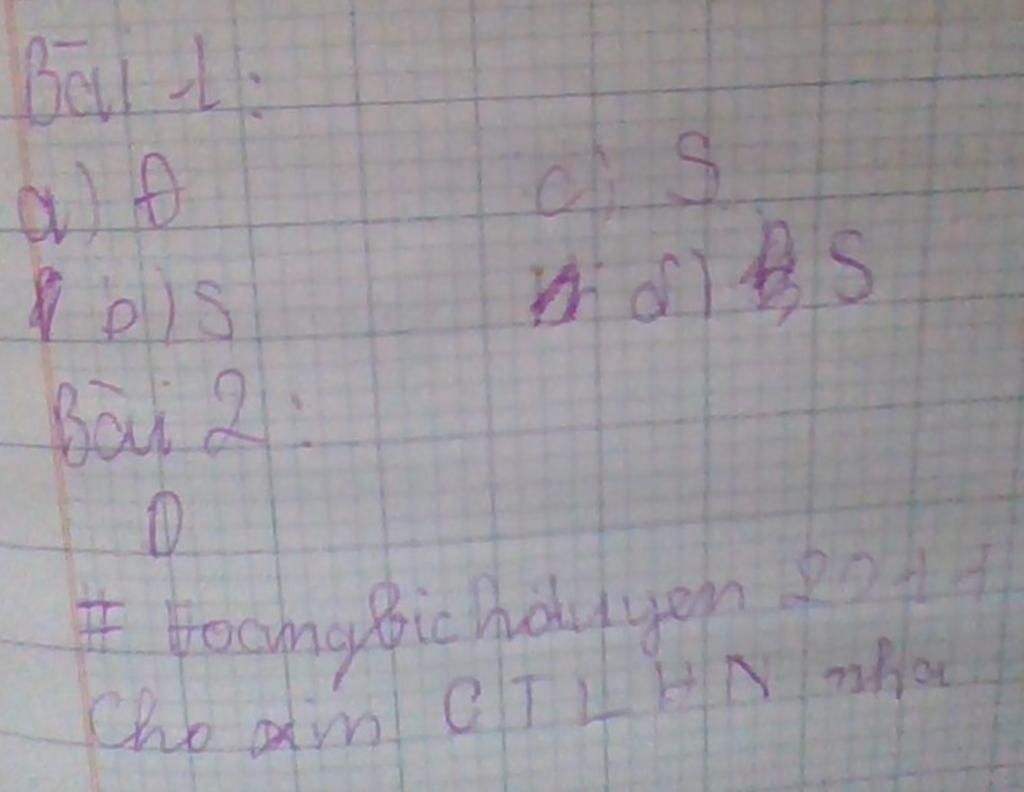 Bài 1:
a) Đ c) S
b) S d) S
Bài 2:
D
# Hoangbichquyen 2011
Cho xin CTLHN nha